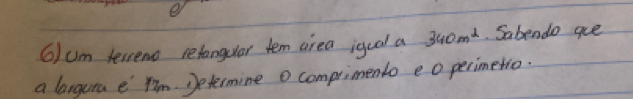 6) um terreno retangular tem área igual a 340m². Sabendo que
a largura é 17m. Determine o comprimento e o perimetro.